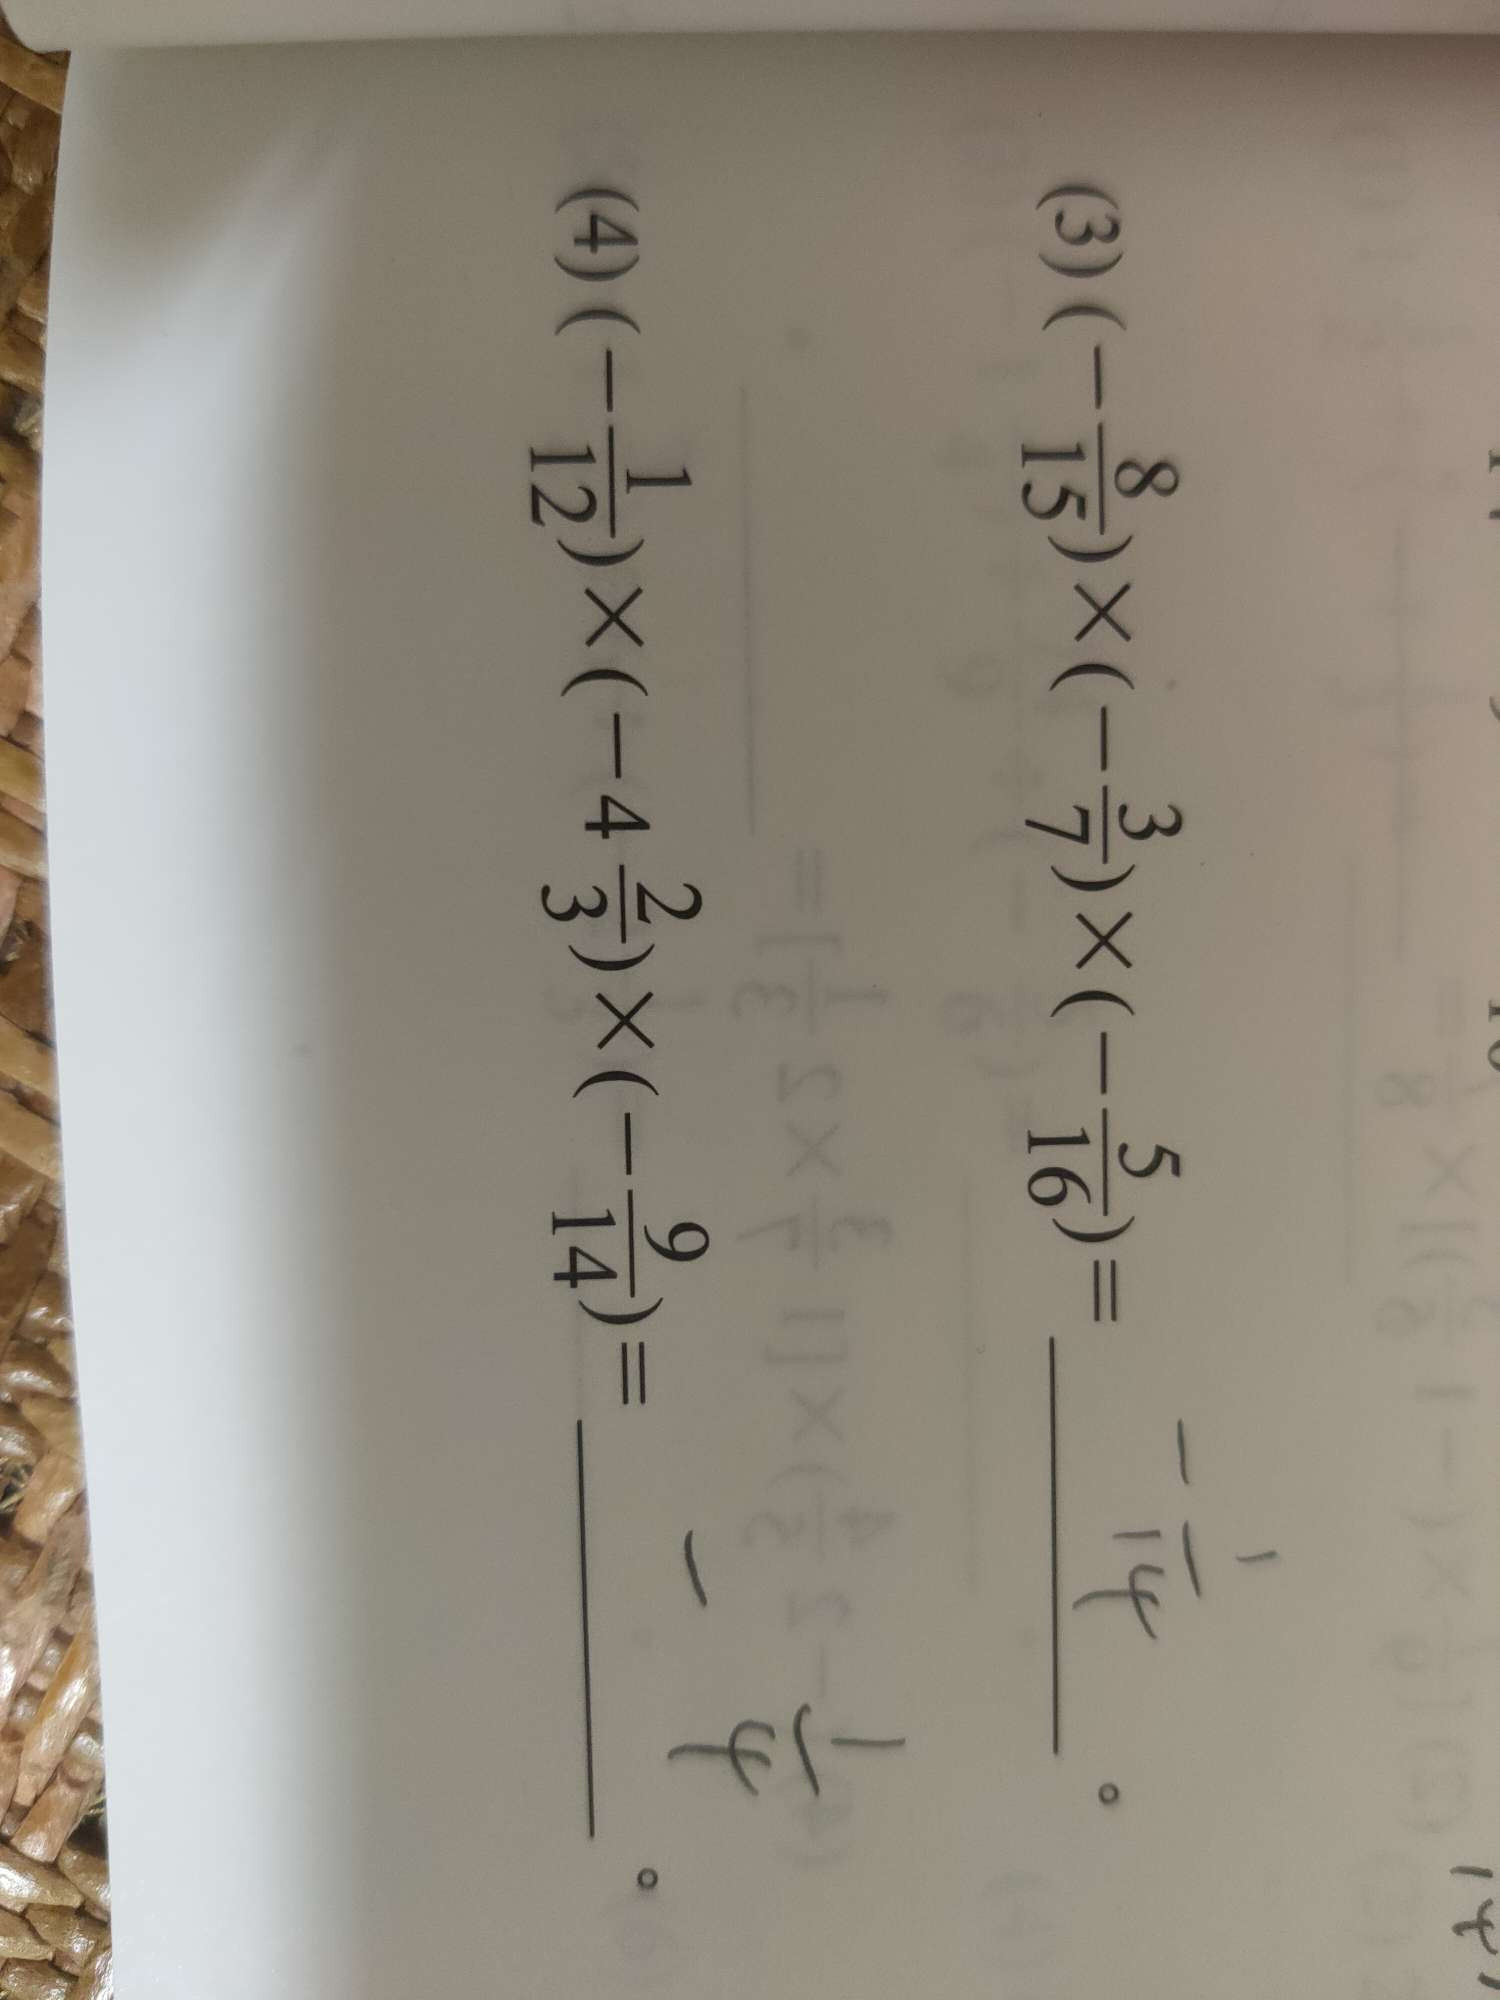 (3) (−8/15)×(−3/7)×(−5/16)= −1/14 。
(4) (−1/12)×(−4 2/3)×(−9/14)= −1/4 。